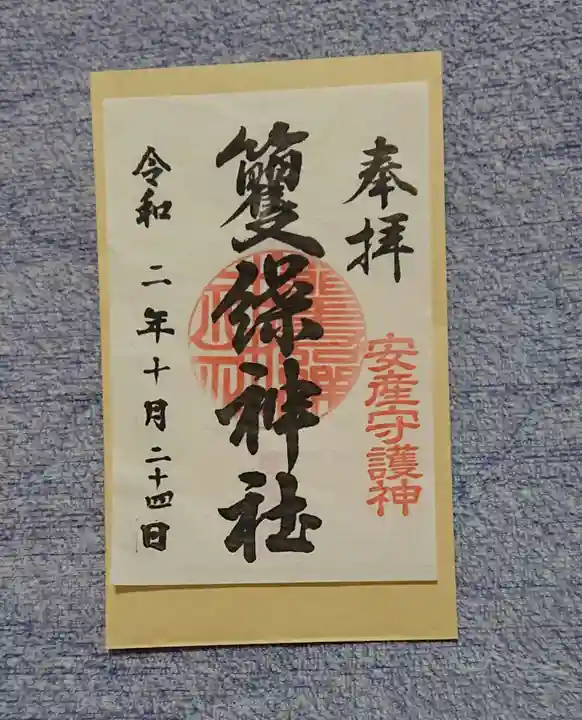 奉拝
安産守護神
籰繰神社
令和 二年十月二十四日